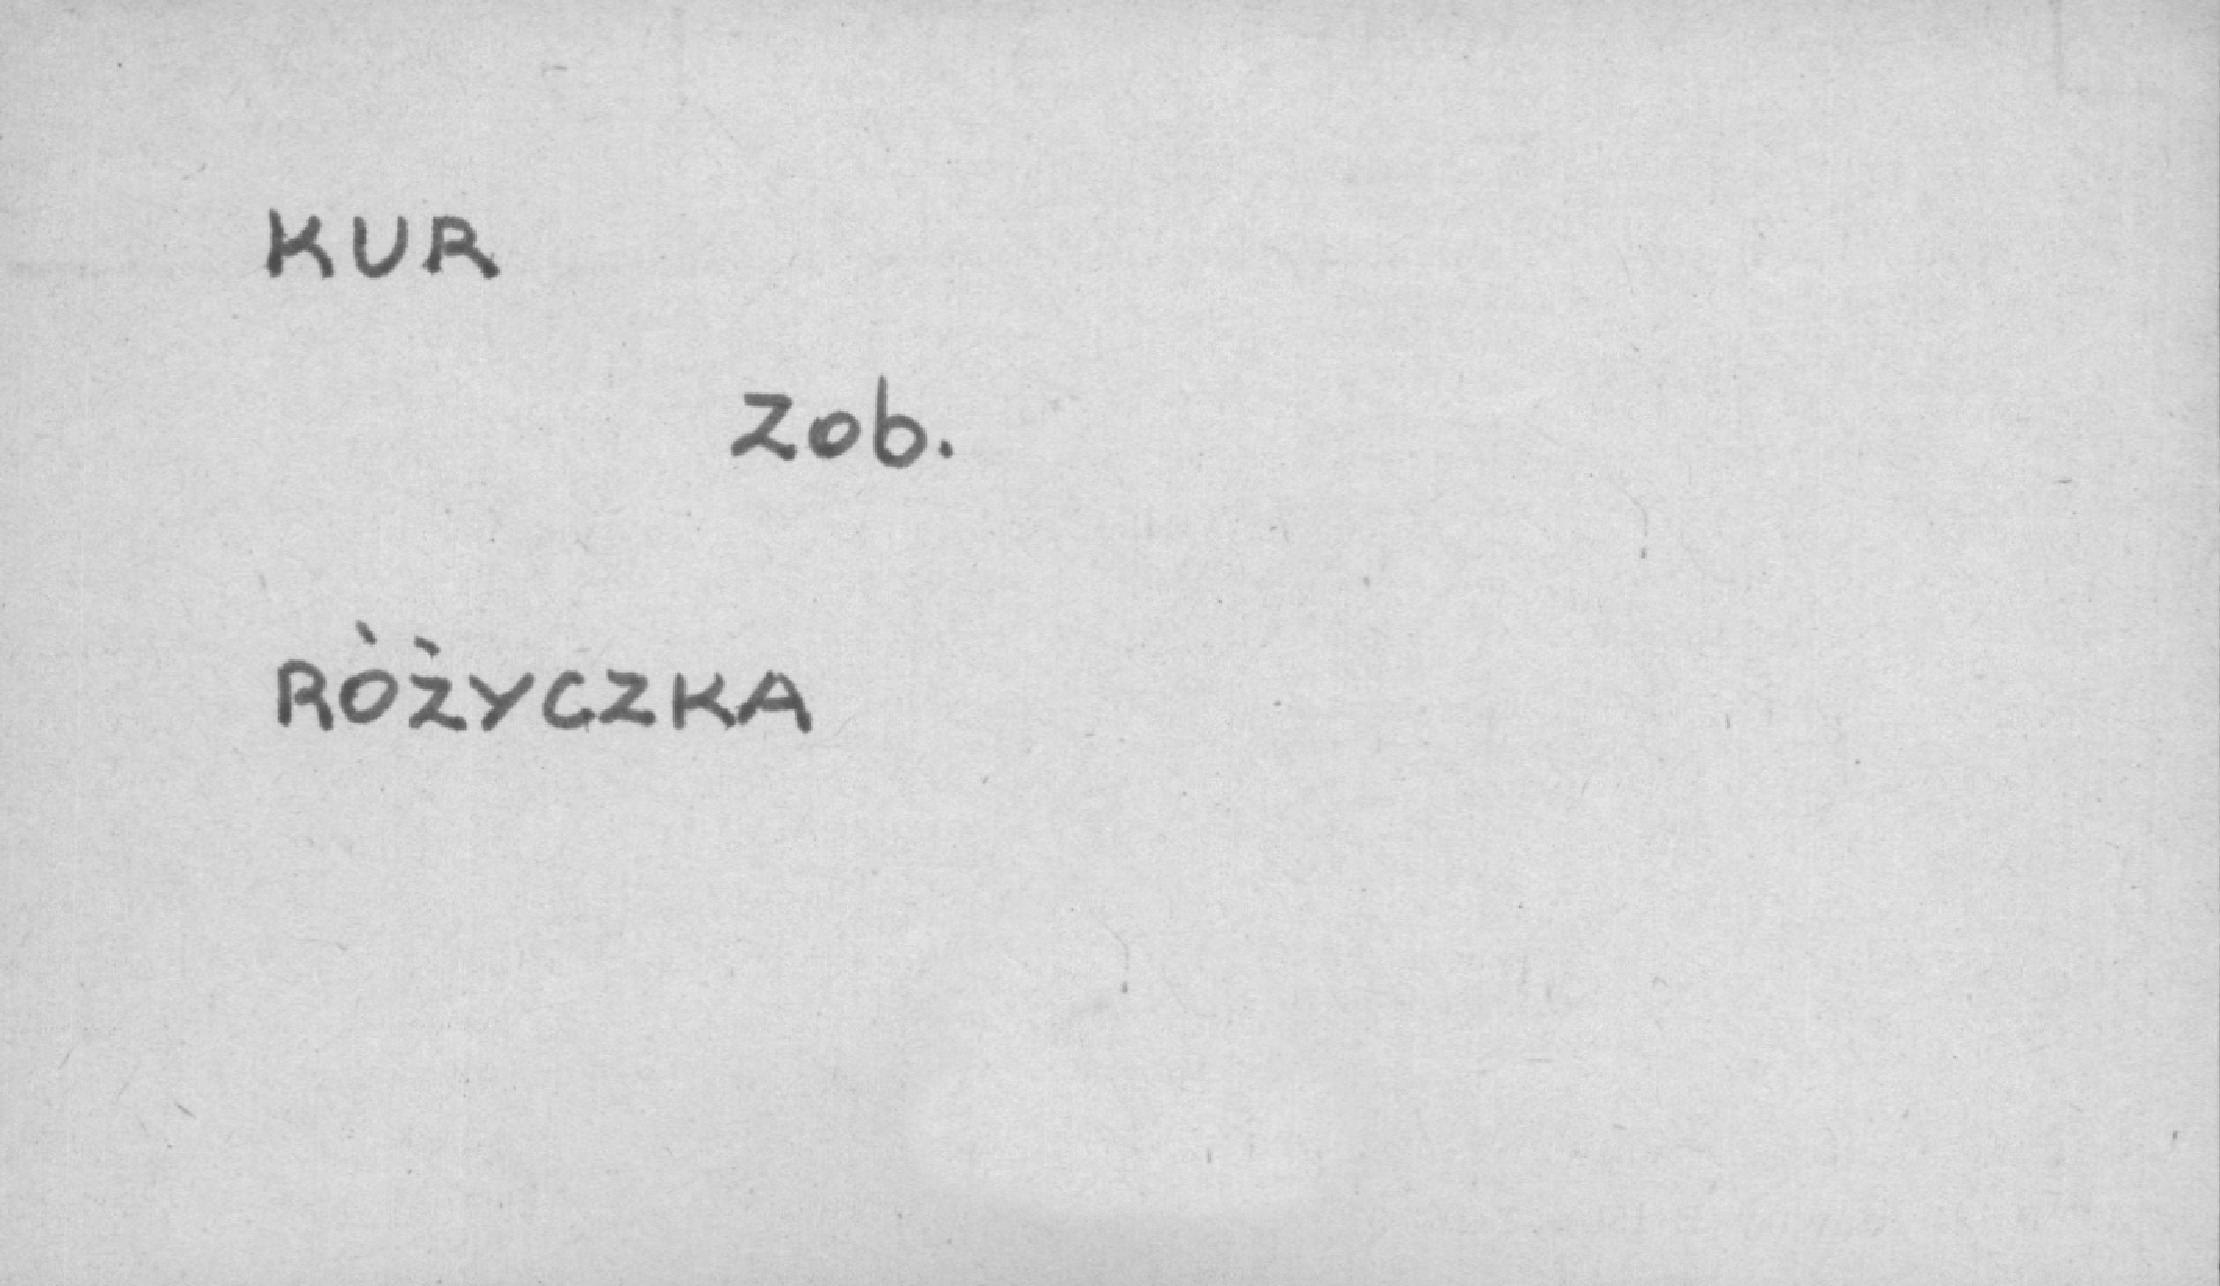 KUR
Zob.
RÓŻYCZKA